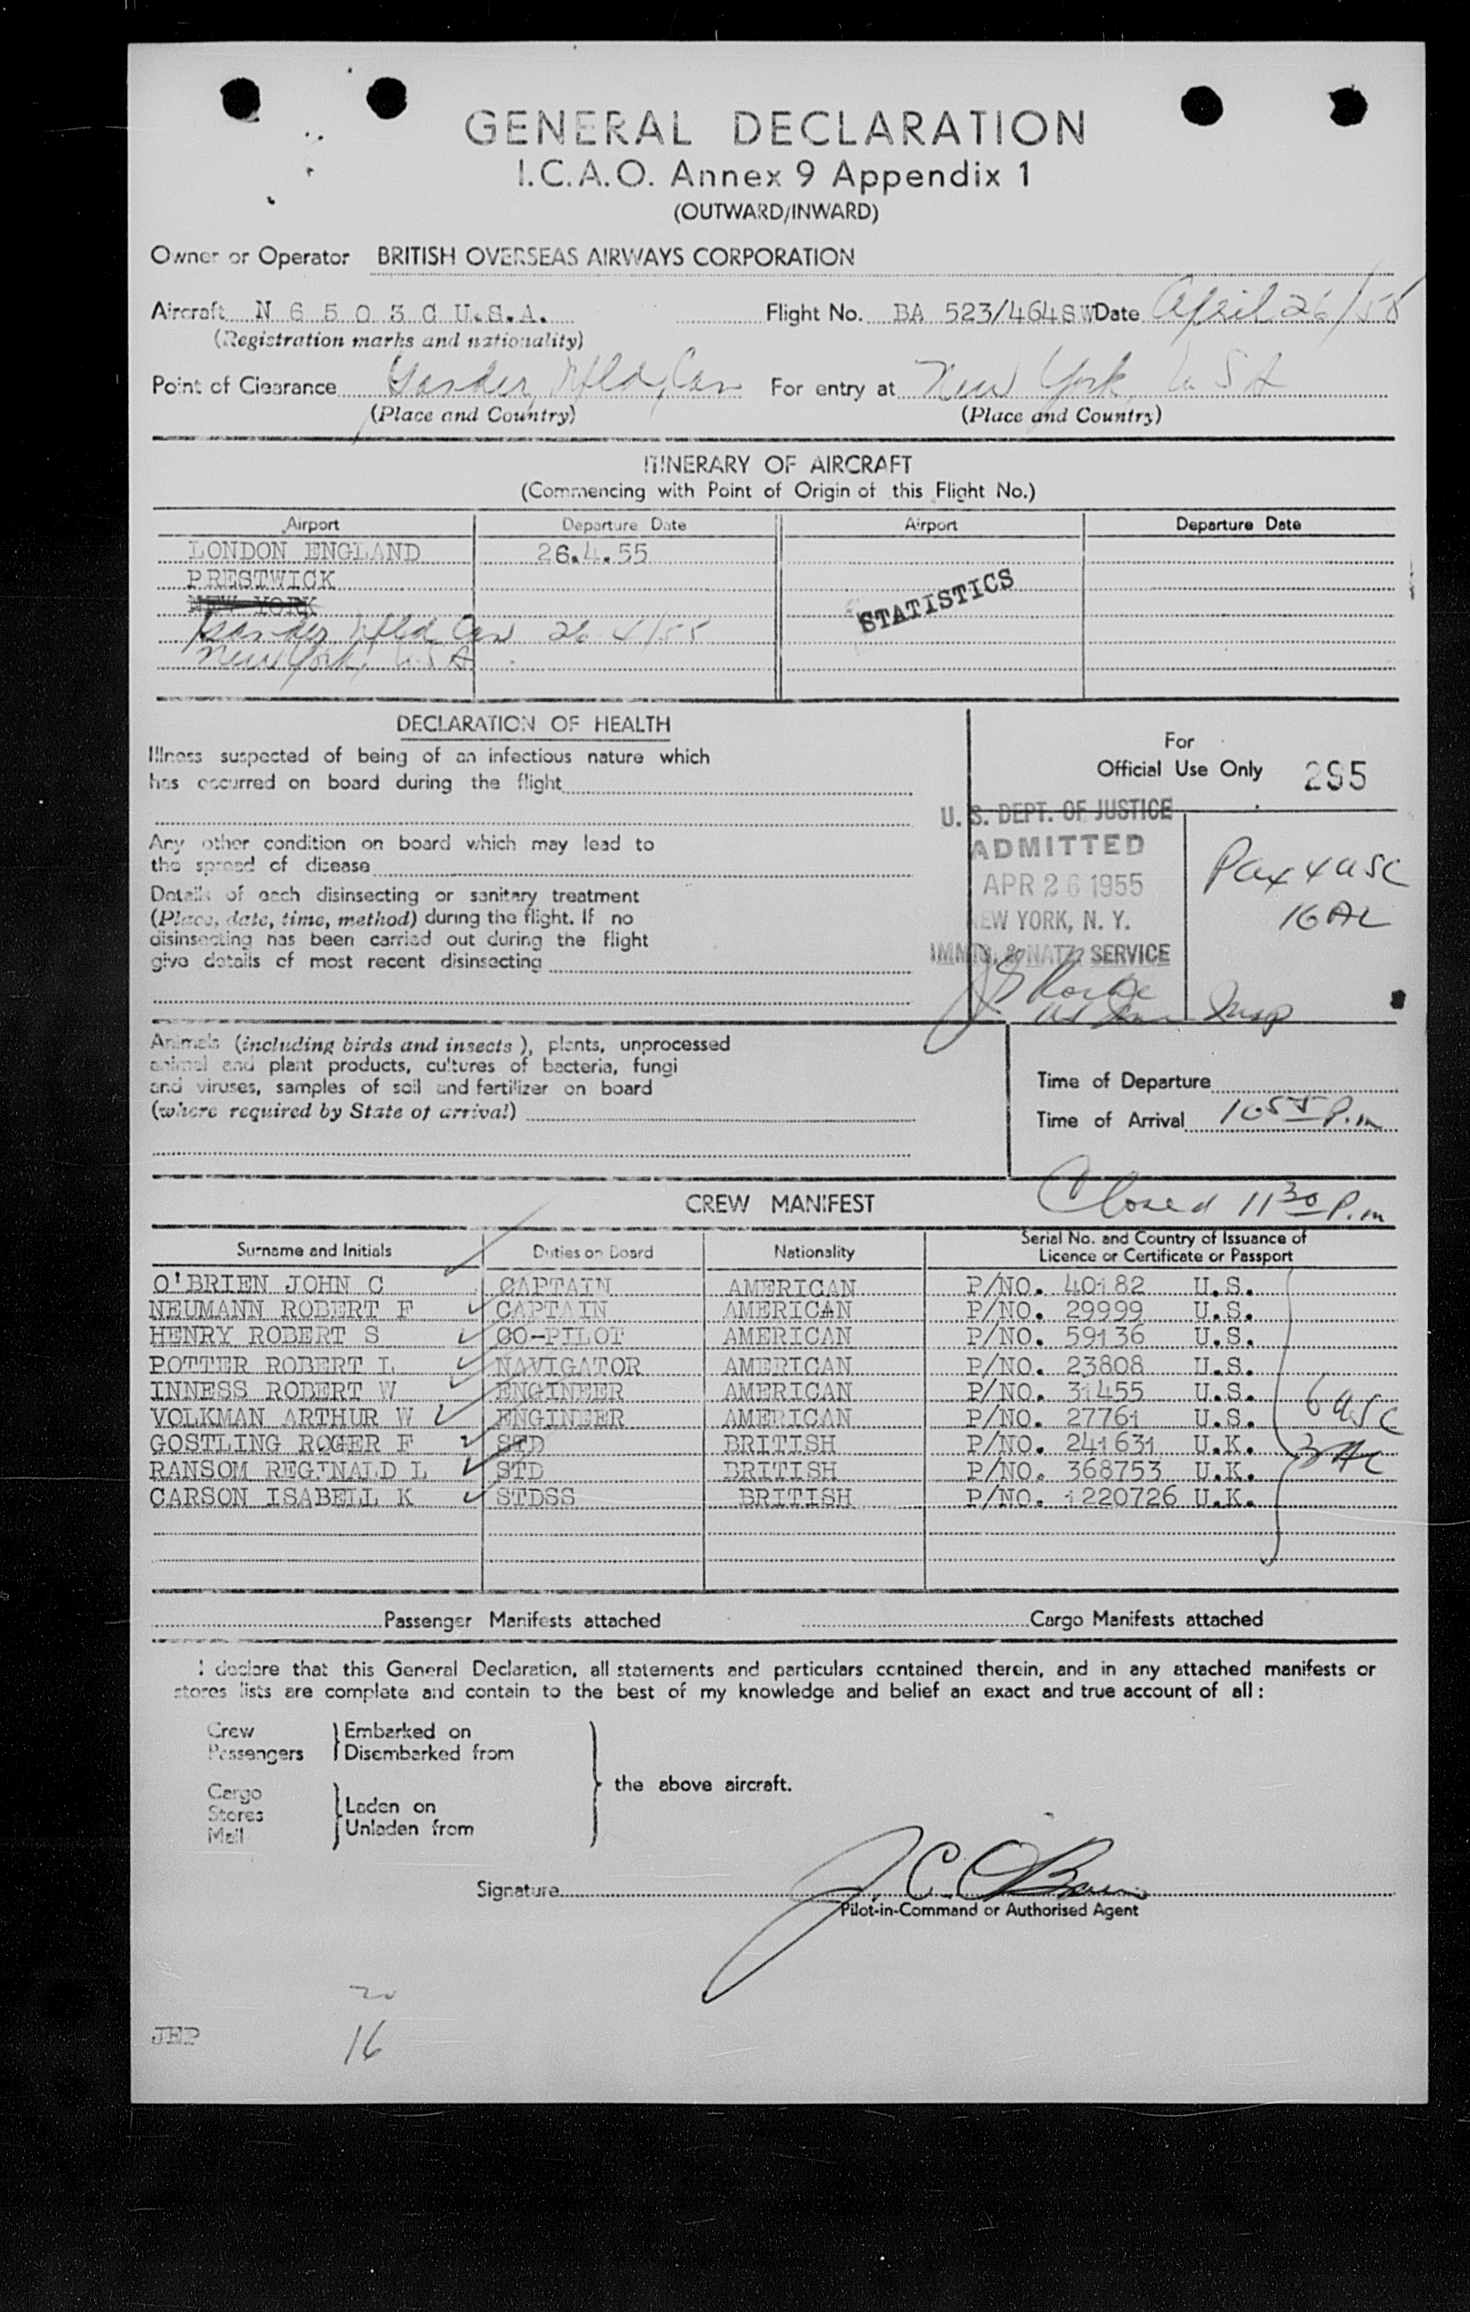 GENERAL DECLARATION
I.C.A.O. Annex 9 Appendix 1
(OUTWARD/INWARD)
Owner or Operator BRITISH OVERSEAS AIRWAYS CORPORATION
Aircraft N 6 5 0 3 C U.S.A. Flight No. BA 523/464SW Date April 26/55
(Registration marks and nationality)
Point of Clearance Gander, Nfld, Can For entry at New York, U S A
(Place and Country) (Place and Country)
ITINERARY OF AIRCRAFT
(Commencing with Point of Origin of this Flight No.)
Airport Departure Date Airport Departure Date
LONDON ENGLAND 26.4.55
PRESTWICK
NEW YORK
STATISTICS
Gander Nfld Can 26 4/55
New York, U S A
DECLARATION OF HEALTH
Illness suspected of being of an infectious nature which
has occurred on board during the flight
Any other condition on board which may lead to
the spread of disease
Details of each disinsecting or sanitary treatment
(Place, date, time, method) during the flight. If no
disinsecting has been carried out during the flight
give details of most recent disinsecting
For
Official Use Only 295
U. S. DEPT. OF JUSTICE
ADMITTED
APR 26 1955
NEW YORK, N. Y.
IMMIG. & NATZ. SERVICE
Pax 4 USC
16 AL
Insp
Animals (including birds and insects), plants, unprocessed
animal and plant products, cultures of bacteria, fungi
and viruses, samples of soil and fertilizer on board
(where required by State of arrival)
Time of Departure
Time of Arrival 1055 P.m
Closed 1130 P.m
CREW MANIFEST
Surname and Initials Duties on Board Nationality Serial No. and Country of Issuance of Licence or Certificate or Passport
O'BRIEN JOHN C CAPTAIN AMERICAN P/NO. 40182 U.S.
NEUMANN ROBERT F CAPTAIN AMERICAN P/NO. 29999 U.S.
HENRY ROBERT S CO-PILOT AMERICAN P/NO. 59136 U.S.
POTTER ROBERT L NAVIGATOR AMERICAN P/NO. 23808 U.S.
INNESS ROBERT W ENGINEER AMERICAN P/NO. 31455 U.S.
VOLKMAN ARTHUR W ENGINEER AMERICAN P/NO. 27761 U.S.
GOSTLING ROGER F STD BRITISH P/NO. 241631 U.K.
RANSOM REGINALD L STD BRITISH P/NO. 368753 U.K.
CARSON ISABELL K STDSS BRITISH P/NO. 1220726 U.K.
6 USC
Passenger Manifests attached Cargo Manifests attached
I declare that this General Declaration, all statements and particulars contained therein, and in any attached manifests or
stores lists are complete and contain to the best of my knowledge and belief an exact and true account of all :
Crew Embarked on
Passengers Disembarked from
the above aircraft.
Cargo
Stores Laden on
Mail Unladen from
Signature J. C. O'Brien
Pilot-in-Command or Authorised Agent
20
JEP 16